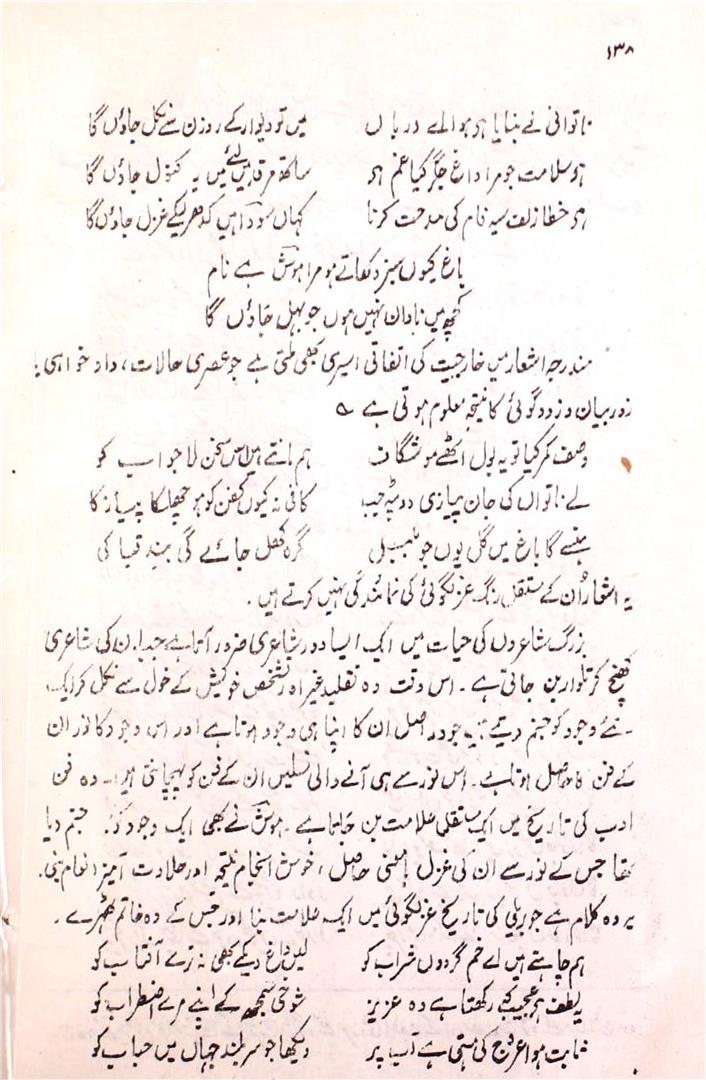 ۱۳۸
ناتوانی نے بنایا ہے ہوا اے درباں میں تو دیوار کے روزن سے نکل جاؤں گا
ہو سلامت جو مرا داغ جگر کیا غم ہے ساتھ مرقد میں لئے میں یہ کنول جاؤں گا
ہے خطا زلف سیہ فام کی مدحت کرنا کہاں سودا میں کدھر لیکے غزل جاؤں گا
باغ کیوں سبز دکھاتے ہو مرا ہوش ہے نام
کچھ میں نادان نہیں ہوں جو بہل جاؤں گا
مندرجہ اشعار میں خارجیت کی اتفاقی اسیری بھی ملتی ہے جو عصری حالات، داد خواہی یا
زور بیان و زود گوئی کا نتیجہ معلوم ہوتی ہے ؎
وصف کمر کیا تو یہ بول اٹھے موشگاف ہم مانتے ہیں اس سخن لاجواب کو
لے ناتواں کی جان پیازی دوپٹہ جب کافی نہ کیوں کفن کو ہو چھلکا پیاز کا
ہنسے گا باغ میں گل یوں جو گرہ کھل جائے گی بند قبا کی
یہ اشعار اُن کے مستقل رنگ غزلگوئی کی نمائندگی نہیں کرتے ہیں۔
بزرگ شاعروں کی حیات میں ایک ایسا دور شاعری ضرور آتا ہے جب ان کی شاعری
کھنچ کر تلوار بن جاتی ہے۔ اس وقت وہ تقلید غیر اور تشخص خویش کے خول سے نکل کر ایک
نئے وجود کو جنم دیتے ہیں جو دراصل ان کا اپنا ہی وجود ہوتا ہے اور اس وجود کا نور ان
کے فن کا حاصل ہوتا ہے۔ اس نور سے ہی آنے والی نسلیں ان کے فن کو پہچانتی ہیں۔ وہ فن
ادب کی تاریخ میں ایک مستقل علامت بن جاتا ہے۔ ہوش نے بھی ایک وجود کو جنم دیا
تھا جس کے نور سے ان کی غزل بامعنی حاصل، خوش انجام نتیجہ اور حلاوت آمیز انعام بنی۔
یہ وہ کلام ہے جو بریلی کی تاریخ غزلگوئی میں ایک علامت بنا اور جس کے وہ خاتم ٹھہرے۔
ہم چاہتے ہیں اے خم گردوں شراب کو لیں داغ دیکے بھی نہ ترے آفتاب کو
لطف ہے عجیب کہ رکھتا ہے وہ عزیز شوخی سمجھ کے اپنے مرے اضطراب کو
ثابت ہوا عروج کی ہستی ہے آب پر دیکھا جو سربلند جہاں میں حباب کو